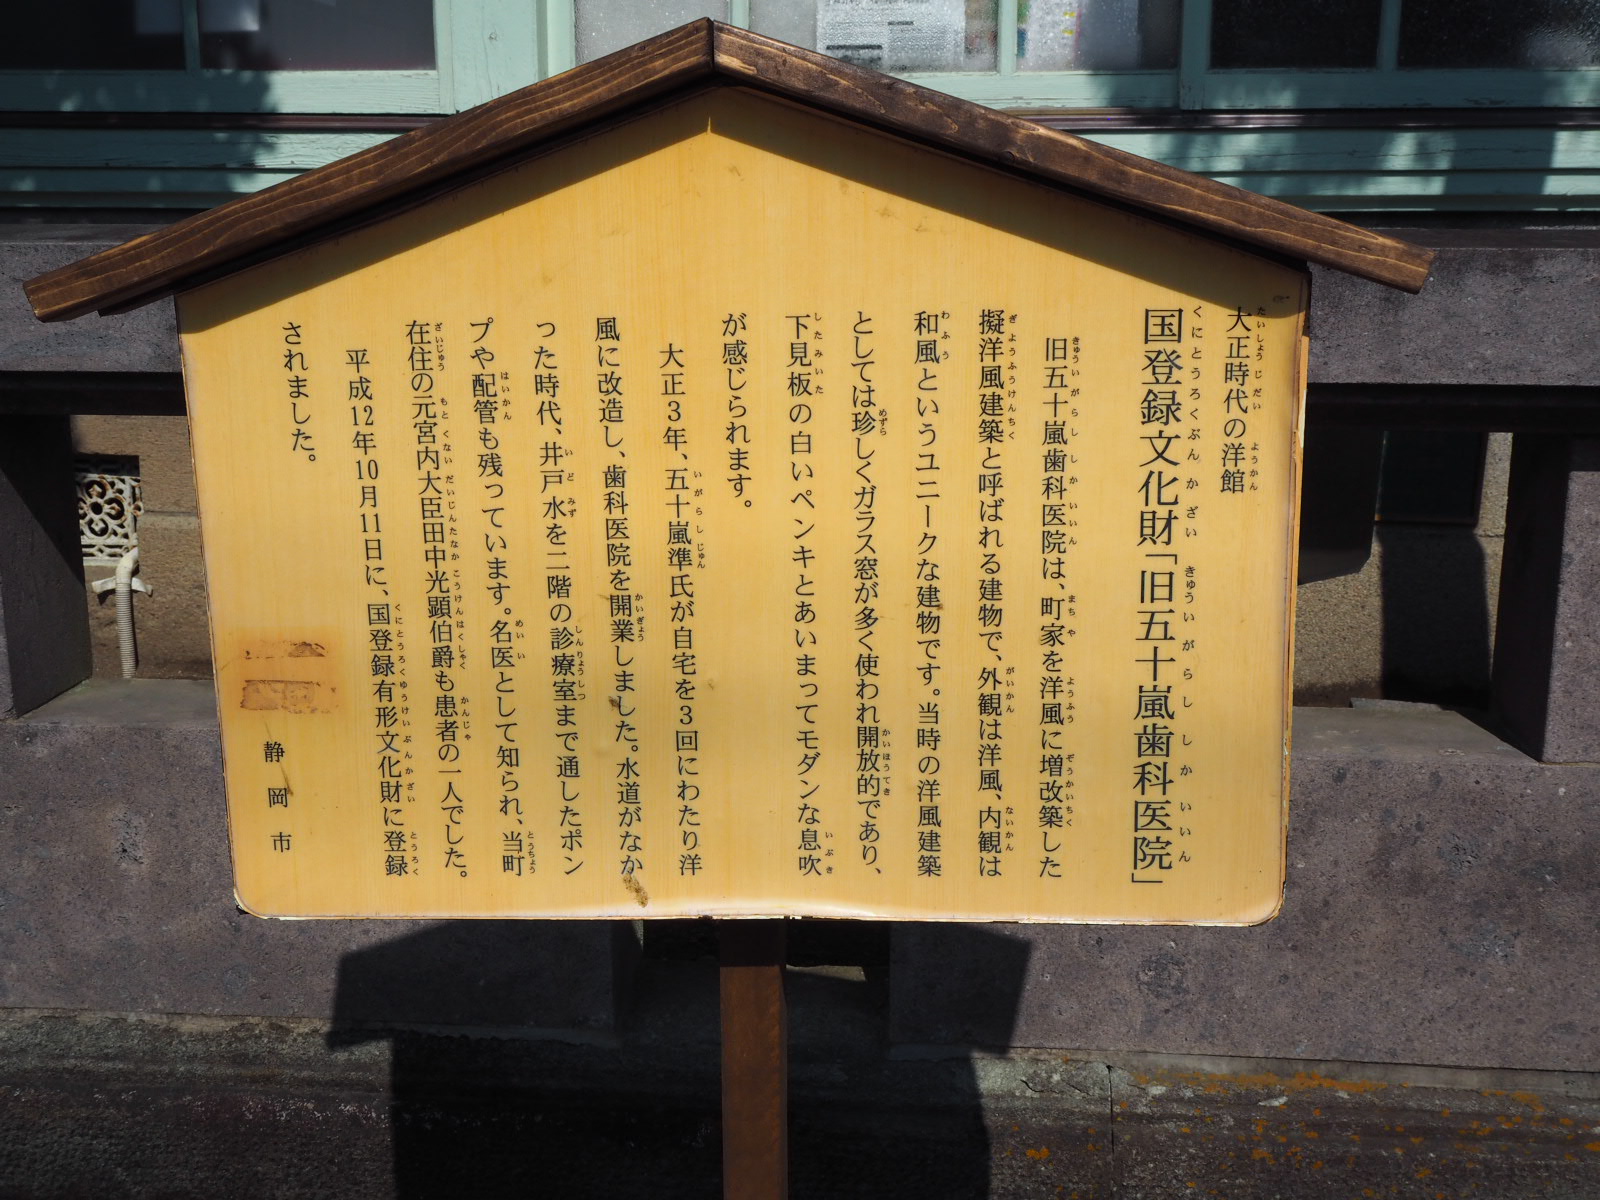 大正時代の洋館
国登録文化財「旧五十嵐歯科医院」
旧五十嵐歯科医院は、町家を洋風に増改築した
擬洋風建築と呼ばれる建物で、外観は洋風、内観は
和風というユニークな建物です。当時の洋風建築
としては珍しくガラス窓が多く使われ開放的であり、
下見板の白いペンキとあいまってモダンな息吹
が感じられます。
大正3年、五十嵐準氏が自宅を3回にわたり洋
風に改造し、歯科医院を開業しました。水道がなか
った時代、井戸水を二階の診療室まで通したポン
プや配管も残っています。名医として知られ、当町
在住の元宮内大臣田中光顕伯爵も患者の一人でした。
平成12年10月11日に、国登録有形文化財に登録
されました。
静岡市